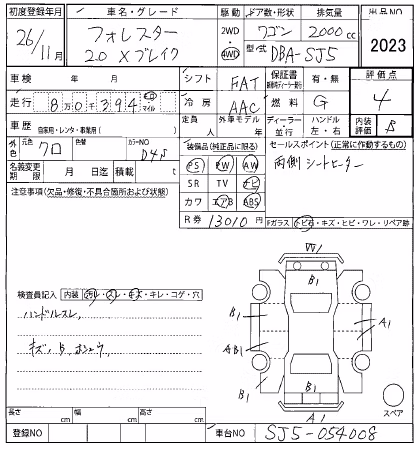 初度登録年月 車名・グレード 駆動 ドア数・形状 排気量 出品NO
26年/11月 フォレスター 2WD・4WD ワゴン 2000cc 2023
2.0 Xブレイク 型式 DBA-SJ5
車検 年 月 シフト FAT 保証書 有・無 評価点
走行 8万0千394 km マイル 冷房 AAC 燃料 G 4
車歴 自家用・レンタ・事業用( ) 定員 人 外車モデル 年 ディーラー・並行 ハンドル 左・右 内装評価 B
外色 元色 クロ 色替 カラーNO D4S 装備品(純正品に限る) セールスポイント(正常に作動するもの)
名義変更期限 月 日迄 積載 PS PW AW 両側シートヒーター
注意事項(欠品・修復・不具合箇所および状態) SR TV ナビ
カワ エアB ABS
R券 13010円 Fガラス トビ石・キズ・ヒビ・ワレ・リペア跡
検査員記入 内装 汚レ・スレ・キズ・キレ・コゲ・穴
ハンドルスレ
キズ、B、ホシュウ
W
B1
B1
A1
AB1
B1
B1
W
A1
スペア
長さ cm 幅 cm 高さ cm
登録NO 車台NO SJ5-054008